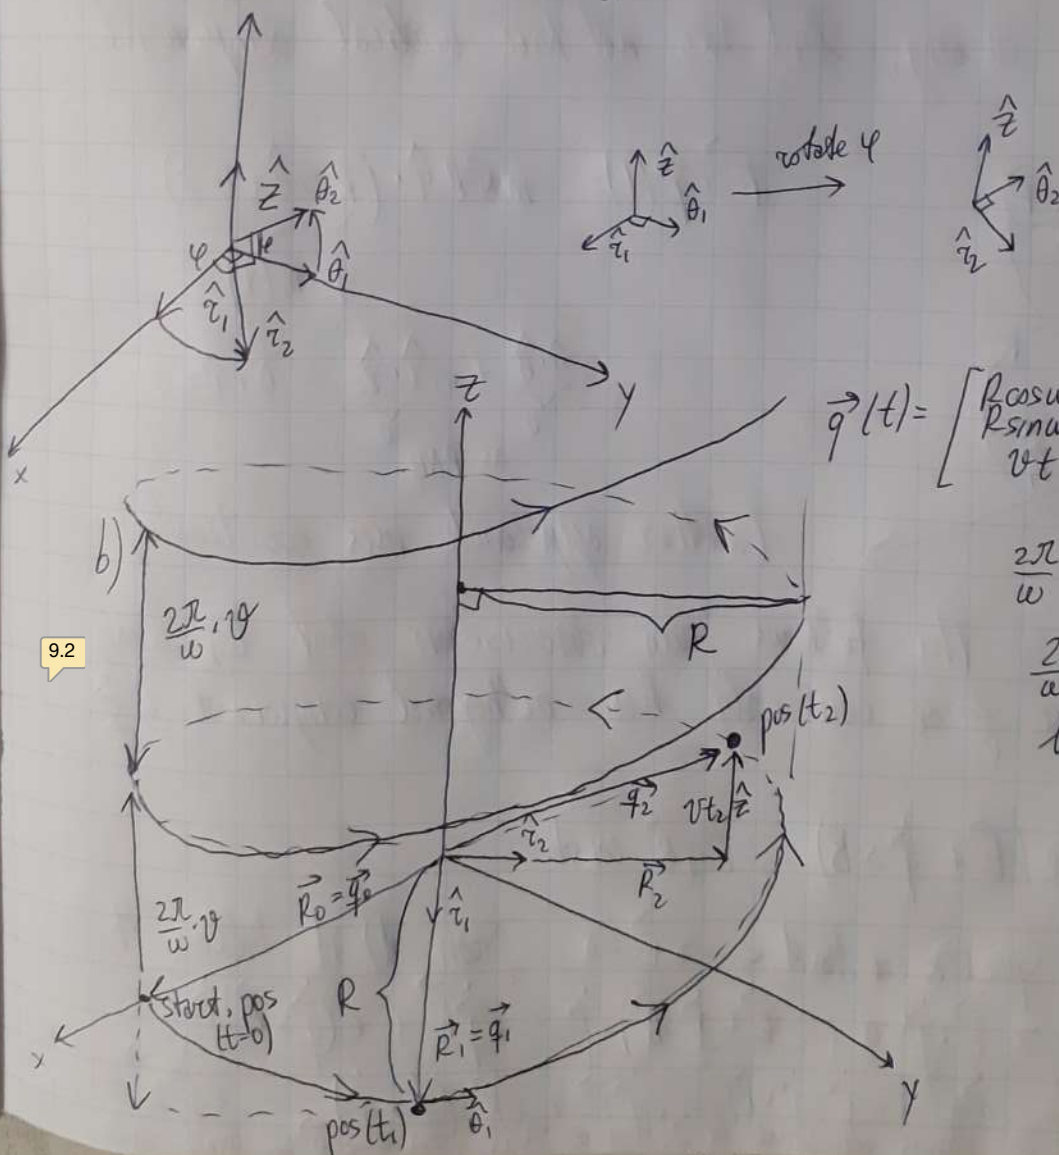 Ẑ
θ̂₂
φ
φ
θ̂₁
r̂₁
r̂₂
x
y
ẑ
θ̂₁
r̂₁
rotate φ
ẑ
θ̂₂
r̂₂
z
q⃗(t) = [Rcosω
Rsinω
vt
b)
2π/ω · v
R
2π/ω
9.2
2
pos(t₂)
q⃗₂
vt₂ ẑ
r̂₂
R⃗₂
R⃗₀ = q⃗₀
r̂₁
2π/ω · v
start. pos
(t=0)
R
R⃗₁ = q⃗₁
x
y
pos(t₁)
θ̂₁